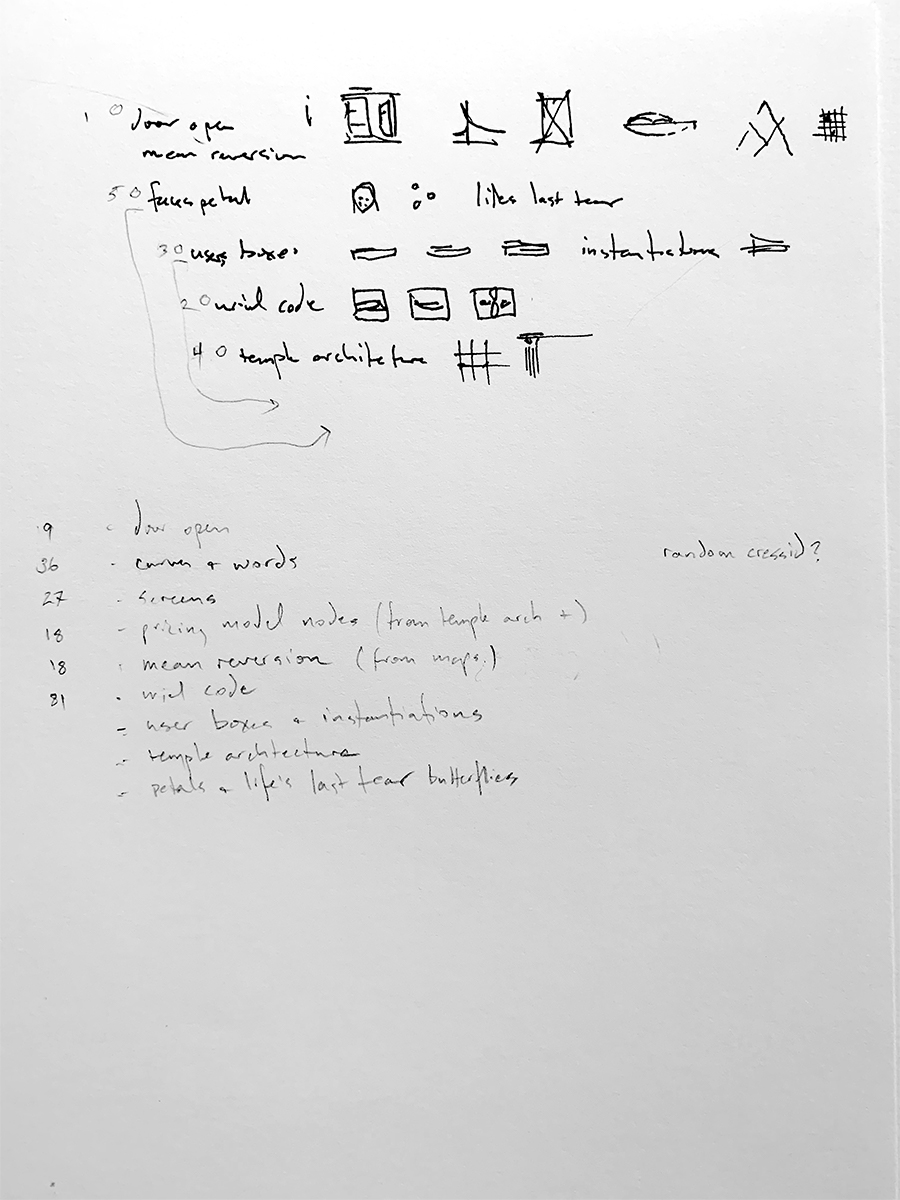 1 0 door open i
mean reversion
5 0 faces petal lifes last tear
3 0 users boxes instantiations
2 0 code
4 0 temple architeture
9 - door open
36 - curves + words
random cressid?
27 - screens
18 - pricing model nodes (from temple arch +)
18 - mean reversion (from maps.)
81 - code
- user boxes + instantiations
- temple architecture
- petals + life's last tear butterflies